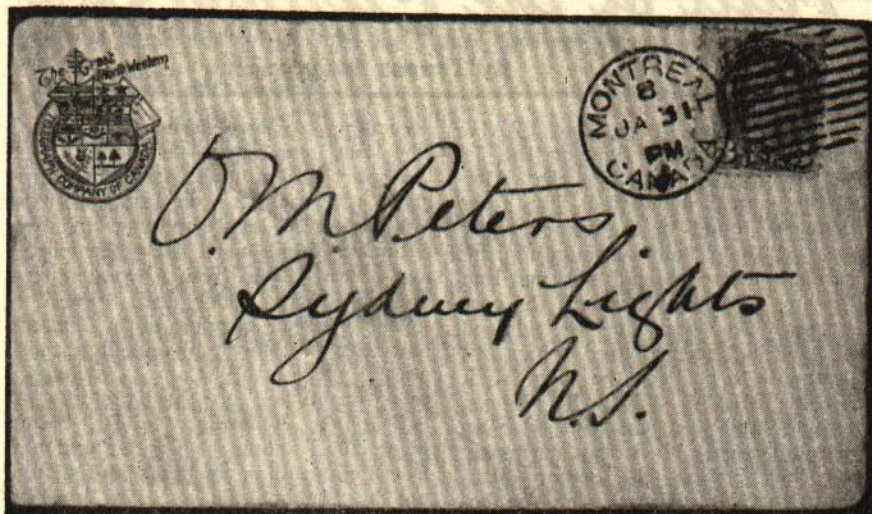 The Great
North Western
TELEGRAPH COMPANY OF CANADA
MONTREAL
8
JA 31
PM
CANADA
O. M. Peters
Sydney Lights
N.S.